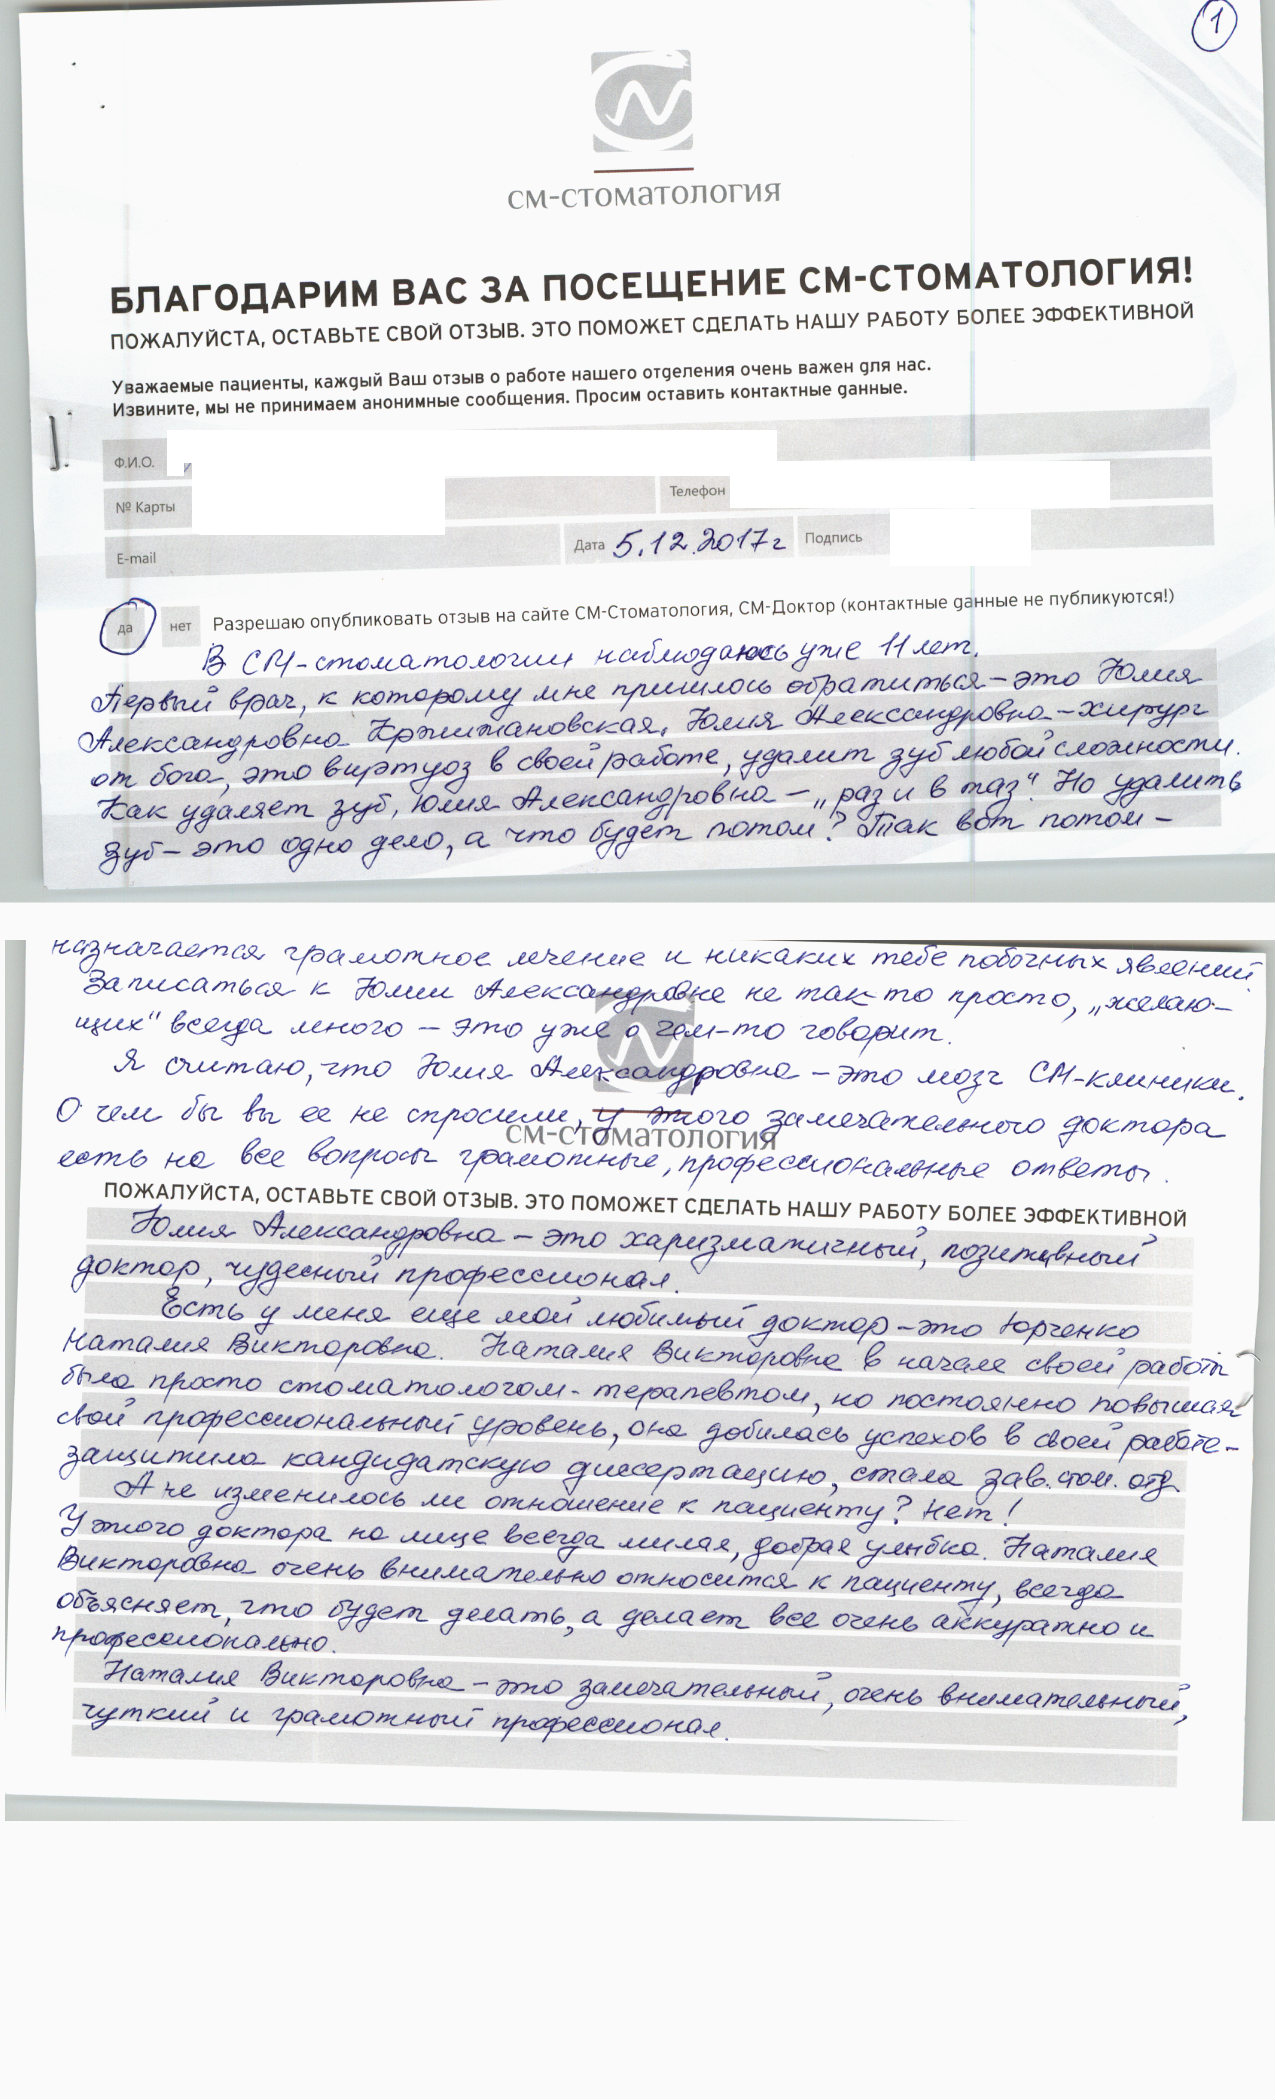 1
СМ-СТОМАТОЛОГИЯ
БЛАГОДАРИМ ВАС ЗА ПОСЕЩЕНИЕ СМ-СТОМАТОЛОГИЯ!
ПОЖАЛУЙСТА, ОСТАВЬТЕ СВОЙ ОТЗЫВ. ЭТО ПОМОЖЕТ СДЕЛАТЬ НАШУ РАБОТУ БОЛЕЕ ЭФФЕКТИВНОЙ
Уважаемые пациенты, каждый Ваш отзыв о работе нашего отделения очень важен для нас.
Извините, мы не принимаем анонимные сообщения. Просим оставить контактные данные.
Ф.И.О.
№ Карты Телефон
E-mail Дата 5.12.2017г Подпись
да нет Разрешаю опубликовать отзыв на сайте СМ-Стоматология, СМ-Доктор (контактные данные не публикуются!)
В СМ-стоматологии наблюдаюсь уже 11 лет.
Первый врач, к которому мне пришлось обратиться – это Юлия
Александровна Кржижановская. Юлия Александровна – хирург
от бога, это виртуоз в своей работе, удалит зуб любой сложности.
Как удаляет зуб, Юлия Александровна – „раз и в таз". Но удалить
зуб – это одно дело, а что будет потом? Так вот потом –
назначается грамотное лечение и никаких тебе побочных явлений.
Записаться к Юлии Александровне не так то просто, „желаю-
щих" всегда много – это уже о чем-то говорит.
Я считаю, что Юлия Александровна – это мозг СМ-клиники.
О чем бы вы ее не спросили, у этого замечательного доктора
СМ-СТОМАТОЛОГИЯ
есть на все вопросы грамотные, профессиональные ответы.
ПОЖАЛУЙСТА, ОСТАВЬТЕ СВОЙ ОТЗЫВ. ЭТО ПОМОЖЕТ СДЕЛАТЬ НАШУ РАБОТУ БОЛЕЕ ЭФФЕКТИВНОЙ
Юлия Александровна – это харизматичный, позитивный
доктор, чудесный профессионал.
Есть у меня еще мой любимый доктор – это Юрченко
Наталия Викторовна. Наталия Викторовна в начале своей работы
была просто стоматологом-терапевтом, но постоянно повышая
свой профессиональный уровень, она добилась успехов в своей работе –
защитила кандидатскую диссертацию, стала зав. стом. отд.
А не изменилось ли отношение к пациенту? Нет!
У этого доктора на лице всегда милая, добрая улыбка. Наталия
Викторовна очень внимательно относится к пациенту, всегда
объясняет, что будет делать, а делает все очень аккуратно и
профессионально.
Наталия Викторовна – это замечательный, очень внимательный,
чуткий и грамотный профессионал.